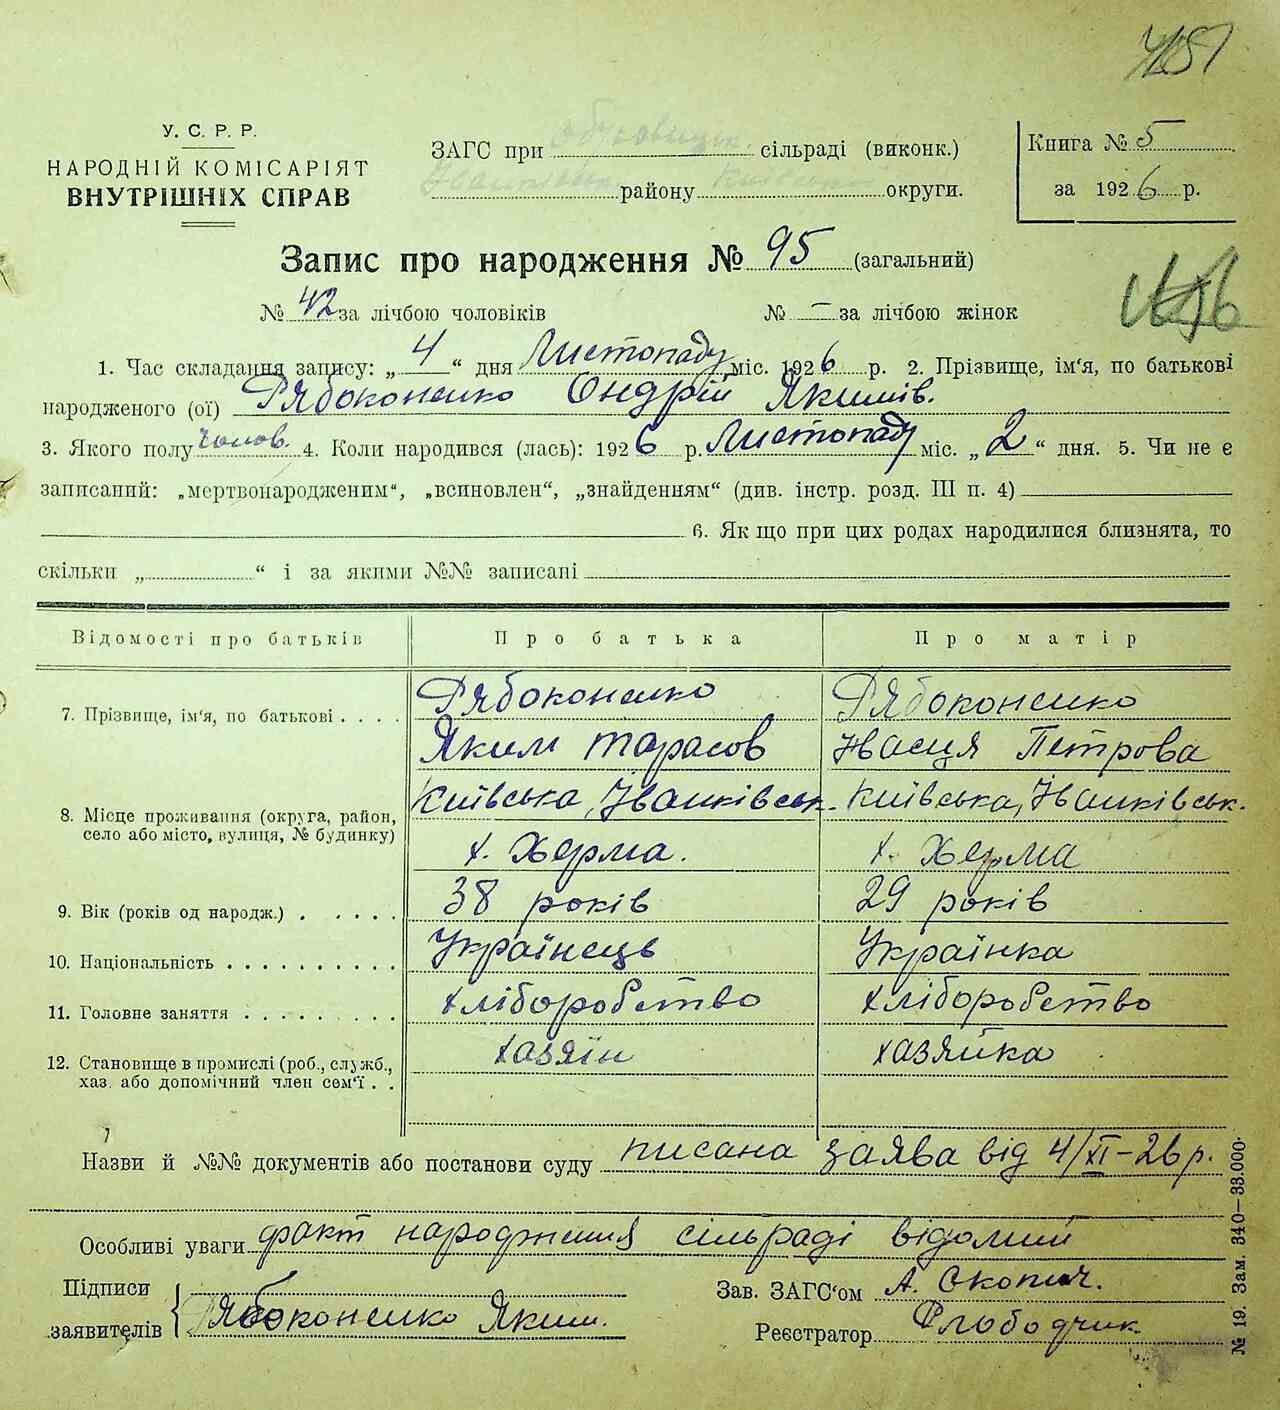 У. С. Р. Р.
НАРОДНІЙ КОМІСАРІЯТ
ВНУТРІШНІХ СПРАВ
ЗАГС при сільраді (виконк.)
району округи.
Книга № 5
за 1926 р.
Запис про народження № 95 (загальний)
№ 42 за лічбою чоловіків № – за лічбою жінок
1. Час складання запису: „ 4 “ дня Листопаду міс. 1926 р. 2. Прізвище, ім'я, по батькові
народженого (ої) Рябоконенко Ондрій Якимів.
3. Якого полу чолов. 4. Коли народився (лась): 1926 р. Листопаду міс. „ 2 “ дня. 5. Чи не є
записаний: „мертвонародженим“, „всиновлен“, „знайденням“ (див. інстр. розд. III п. 4)
6. Як що при цих родах народилися близнята, то
скільки „ “ і за якими №№ записані
Відомості про батьків Про батька Про матір
7. Прізвище, ім'я, по батькові . . . . Рябоконенко Рябоконенко
Яким Тарасов Настя Петрова
8. Місце проживання (округа, район, село або місто, вулиця, № будинку) Київська, Іванківськ. Київська, Іванківськ.
х. Херма. х. Херма
9. Вік (років од народж.) . . . . . . 38 років 29 років
10. Національність . . . . . . . . . . Українець Українка
11. Головне заняття . . . . . . . . . Хліборобство Хліборобство
12. Становище в промислі (роб., служб., хаз. або допомічний член сем'ї . . Хазяїн Хазяйка
Назви й №№ документів або постанови суду писана заява від 4/XI–26 р.
Особливі уваги факт народження сільраді відомий
Підписи
заявителів Рябоконенко Яким.
Зав. ЗАГС'ом А. Скопич.
Реєстратор
№ 19. Зам. 340—33.000.